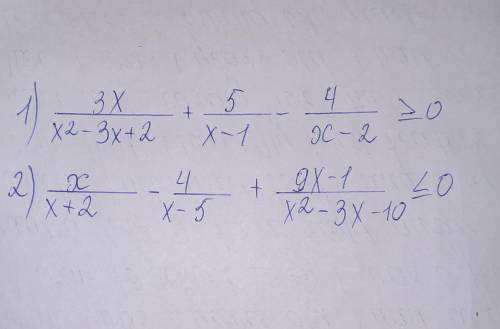 1) 3x/(x²-3x+2) + 5/(x-1) - 4/(x-2) ≥ 0
2) x/(x+2) - 4/(x-5) + (9x-1)/(x²-3x-10) ≤ 0